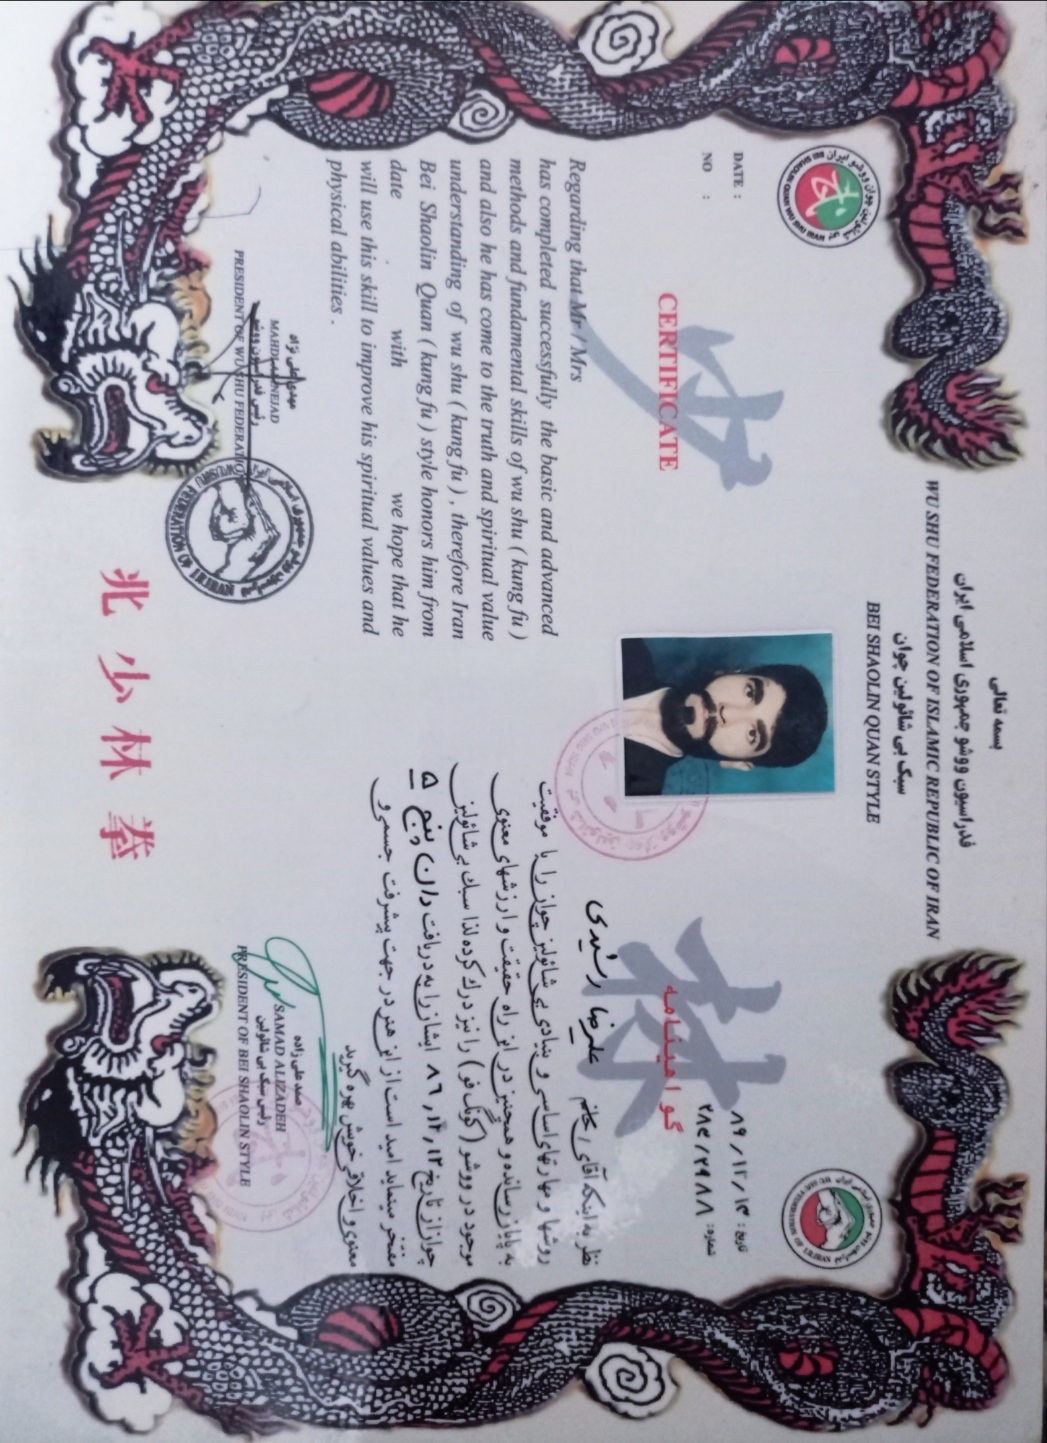 بسمه تعالی
فدراسیون ووشو جمهوری اسلامی ایران
WU SHU FEDERATION OF ISLAMIC REPUBLIC OF IRAN
سبک بی شائولین جوان
BEI SHAOLIN QUAN STYLE
DATE :
NO :
CERTIFICATE
Regarding that Mr / Mrs
has completed successfully the basic and advanced
methods and fundamental skills of wu shu ( kung fu )
and also he has come to the truth and spiritual value
understanding of wu shu ( kung fu ) , therefore Iran
Bei Shaolin Quan ( kung fu ) style honors him from
date with we hope that he
will use this skill to improve his spiritual values and
physical abilities .
مهدی علی نژاد
MAHDI ALINEJAD
رئیس فدراسیون ووشو
PRESIDENT OF WUSHU FEDERATION
تاریخ: ۸۹/۱۲/۱۳
شماره:
گواهینامه
نظر به اینکه آقای / خانم علیرضا رشیدی
روشها و مهارتهای اساسی و بنیادی بی شائولین چوان را با موفقیت
به پایان رسانده و همچنین در این راه حقیقت و ارزشهای معنوی
موجود در ووشو (کونگ فو) را نیز درک کرده لذا سبک بی شائولین
چوان از تاریخ ۸۶,۱۲,۱۳ ایشان را به دریافت دان پنج ۵
مفتخر مینماید امید است از این هنر در جهت پیشرفت جسمی و
معنوی و اخلاقی خویش بهره گیرند
صمد علی زاده
SAMAD ALIZADEH
رئیس سبک بی شائولین
PRESIDENT OF BEI SHAOLIN STYLE
WUSHU FEDERATION OF I.R.IRAN
北少林拳